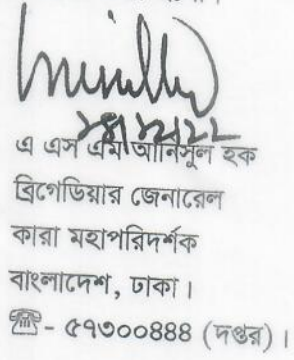 এ এস এম আনিসুল হক
ব্রিগেডিয়ার জেনারেল
কারা মহাপরিদর্শক
বাংলাদেশ, ঢাকা।
☎- ৫৭৩০০৪৪৪ (দপ্তর)।